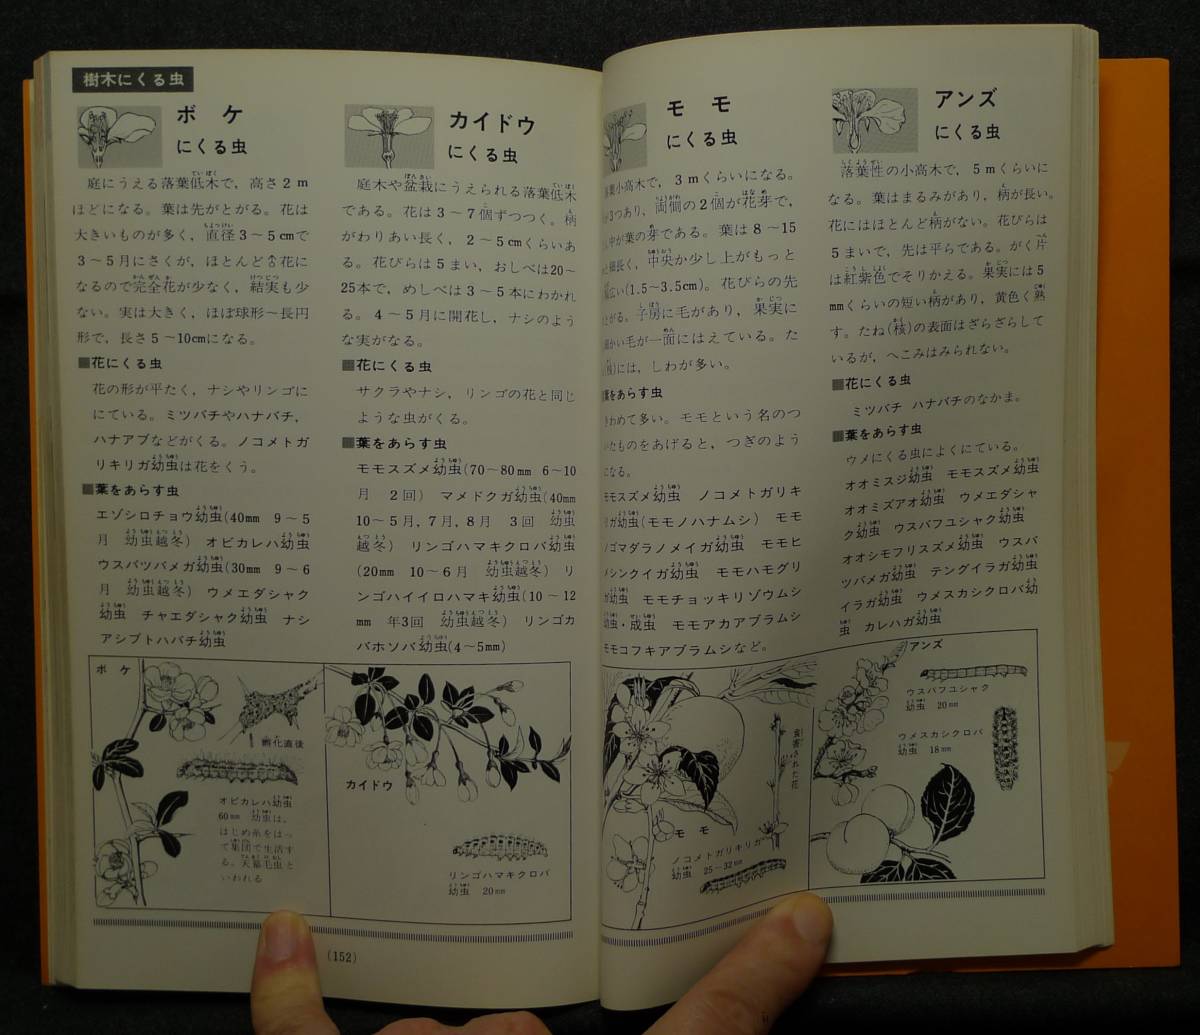 樹木にくる虫
ボケ
にくる虫
庭にうえる落葉低木で，高さ2m
ほどになる。葉は先がとがる。花は
大きいものが多く，直径3〜5cmで
3〜5月にさくが，ほとんど♂花に
なるので完全花が少なく，結実も少
ない。実は大きく，ほぼ球形〜長円
形で，長さ5〜10cmになる。
■花にくる虫
花の形が平たく，ナシやリンゴに
にている。ミツバチやハナバチ，
ハナアブなどがくる。ノコメトガ
リキリガ幼虫は花をくう。
■葉をあらす虫
エゾシロチョウ幼虫(40mm 9〜5
月 幼虫越冬) オビカレハ幼虫
ウスバツバメガ幼虫(30mm 9〜6
月 幼虫越冬) ウメエダシャク
幼虫 チャエダシャク幼虫 ナシ
アシブトハバチ幼虫
カイドウ
にくる虫
庭木や盆栽にうえられる落葉低木
である。花は3〜7個ずつつく。柄
がわりあい長く，2〜5cmくらいあ
る。花びらは5まい，おしべは20〜
25本で，めしべは3〜5本にわかれ
る。4〜5月に開花し，ナシのよう
な実がなる。
■花にくる虫
サクラやナシ，リンゴの花と同じ
ような虫がくる。
■葉をあらす虫
モモスズメ幼虫(70〜80mm 6〜10
月 2回) マメドクガ幼虫(40mm
10〜5月,7月,8月 3回 幼虫
越冬) リンゴハマキクロバ幼虫
(20mm 10〜6月 幼虫越冬) リ
ンゴハイイロハマキ幼虫(10〜12
mm 年3回 幼虫越冬) リンゴカ
バホソバ幼虫(4〜5mm)
ボケ
孵化直後
オビカレハ幼虫
60mm 幼虫は，
はじめ糸をはっ
て集団で生活す
る。天幕毛虫と
いわれる
カイドウ
リンゴハマキクロバ
幼虫 20mm
(152)
モモ
にくる虫
葉小高木で，3mくらいになる。
3つあり，両側の2個が花芽で，
中が葉の芽である。葉は8〜15
細長く，中央か少し上がもっと
広い(1.5〜3.5cm)。花びらの先
とがる。子房に毛があり，果実に
細かい毛が一面にはえている。た
(核)には，しわが多い。
葉をあらす虫
きわめて多い。モモという名のつ
いたものをあげると，つぎのよう
になる。
モモスズメ幼虫 ノコメトガリキ
リガ幼虫(モモノハナムシ) モモ
ノゴマダラノメイガ幼虫 モモヒ
メシンクイガ幼虫 モモハモグリ
ガ幼虫 モモチョッキリゾウムシ
幼虫・成虫 モモアカアブラムシ
モモコフキアブラムシなど。
アンズ
にくる虫
落葉性の小高木で，5mくらいに
なる。葉はまるみがあり，柄が長い。
花にはほとんど柄がない。花びらは
5まいで，先は平らである。がく片
は紅紫色でそりかえる。果実には5
mmくらいの短い柄があり，黄色く熟
す。たね(核)の表面はざらざらして
いるが，へこみはみられない。
■花にくる虫
ミツバチ ハナバチのなかま。
■葉をあらす虫
ウメにくる虫によくにている。
オオミスジ幼虫 モモスズメ幼虫
オオミズアオ幼虫 ウメエダシャ
ク幼虫 ウスバフユシャク幼虫
オオシモフリスズメ幼虫 ウスバ
ツバメガ幼虫 テングイラガ幼虫
イラガ幼虫 ウメスカシクロバ幼
虫 カレハガ幼虫
食害された花
モモ
ノコメトガリキリガ
幼虫 25〜32mm
アンズ
ウスバフユシャク
幼虫 20mm
ウメスカシクロバ
幼虫 18mm